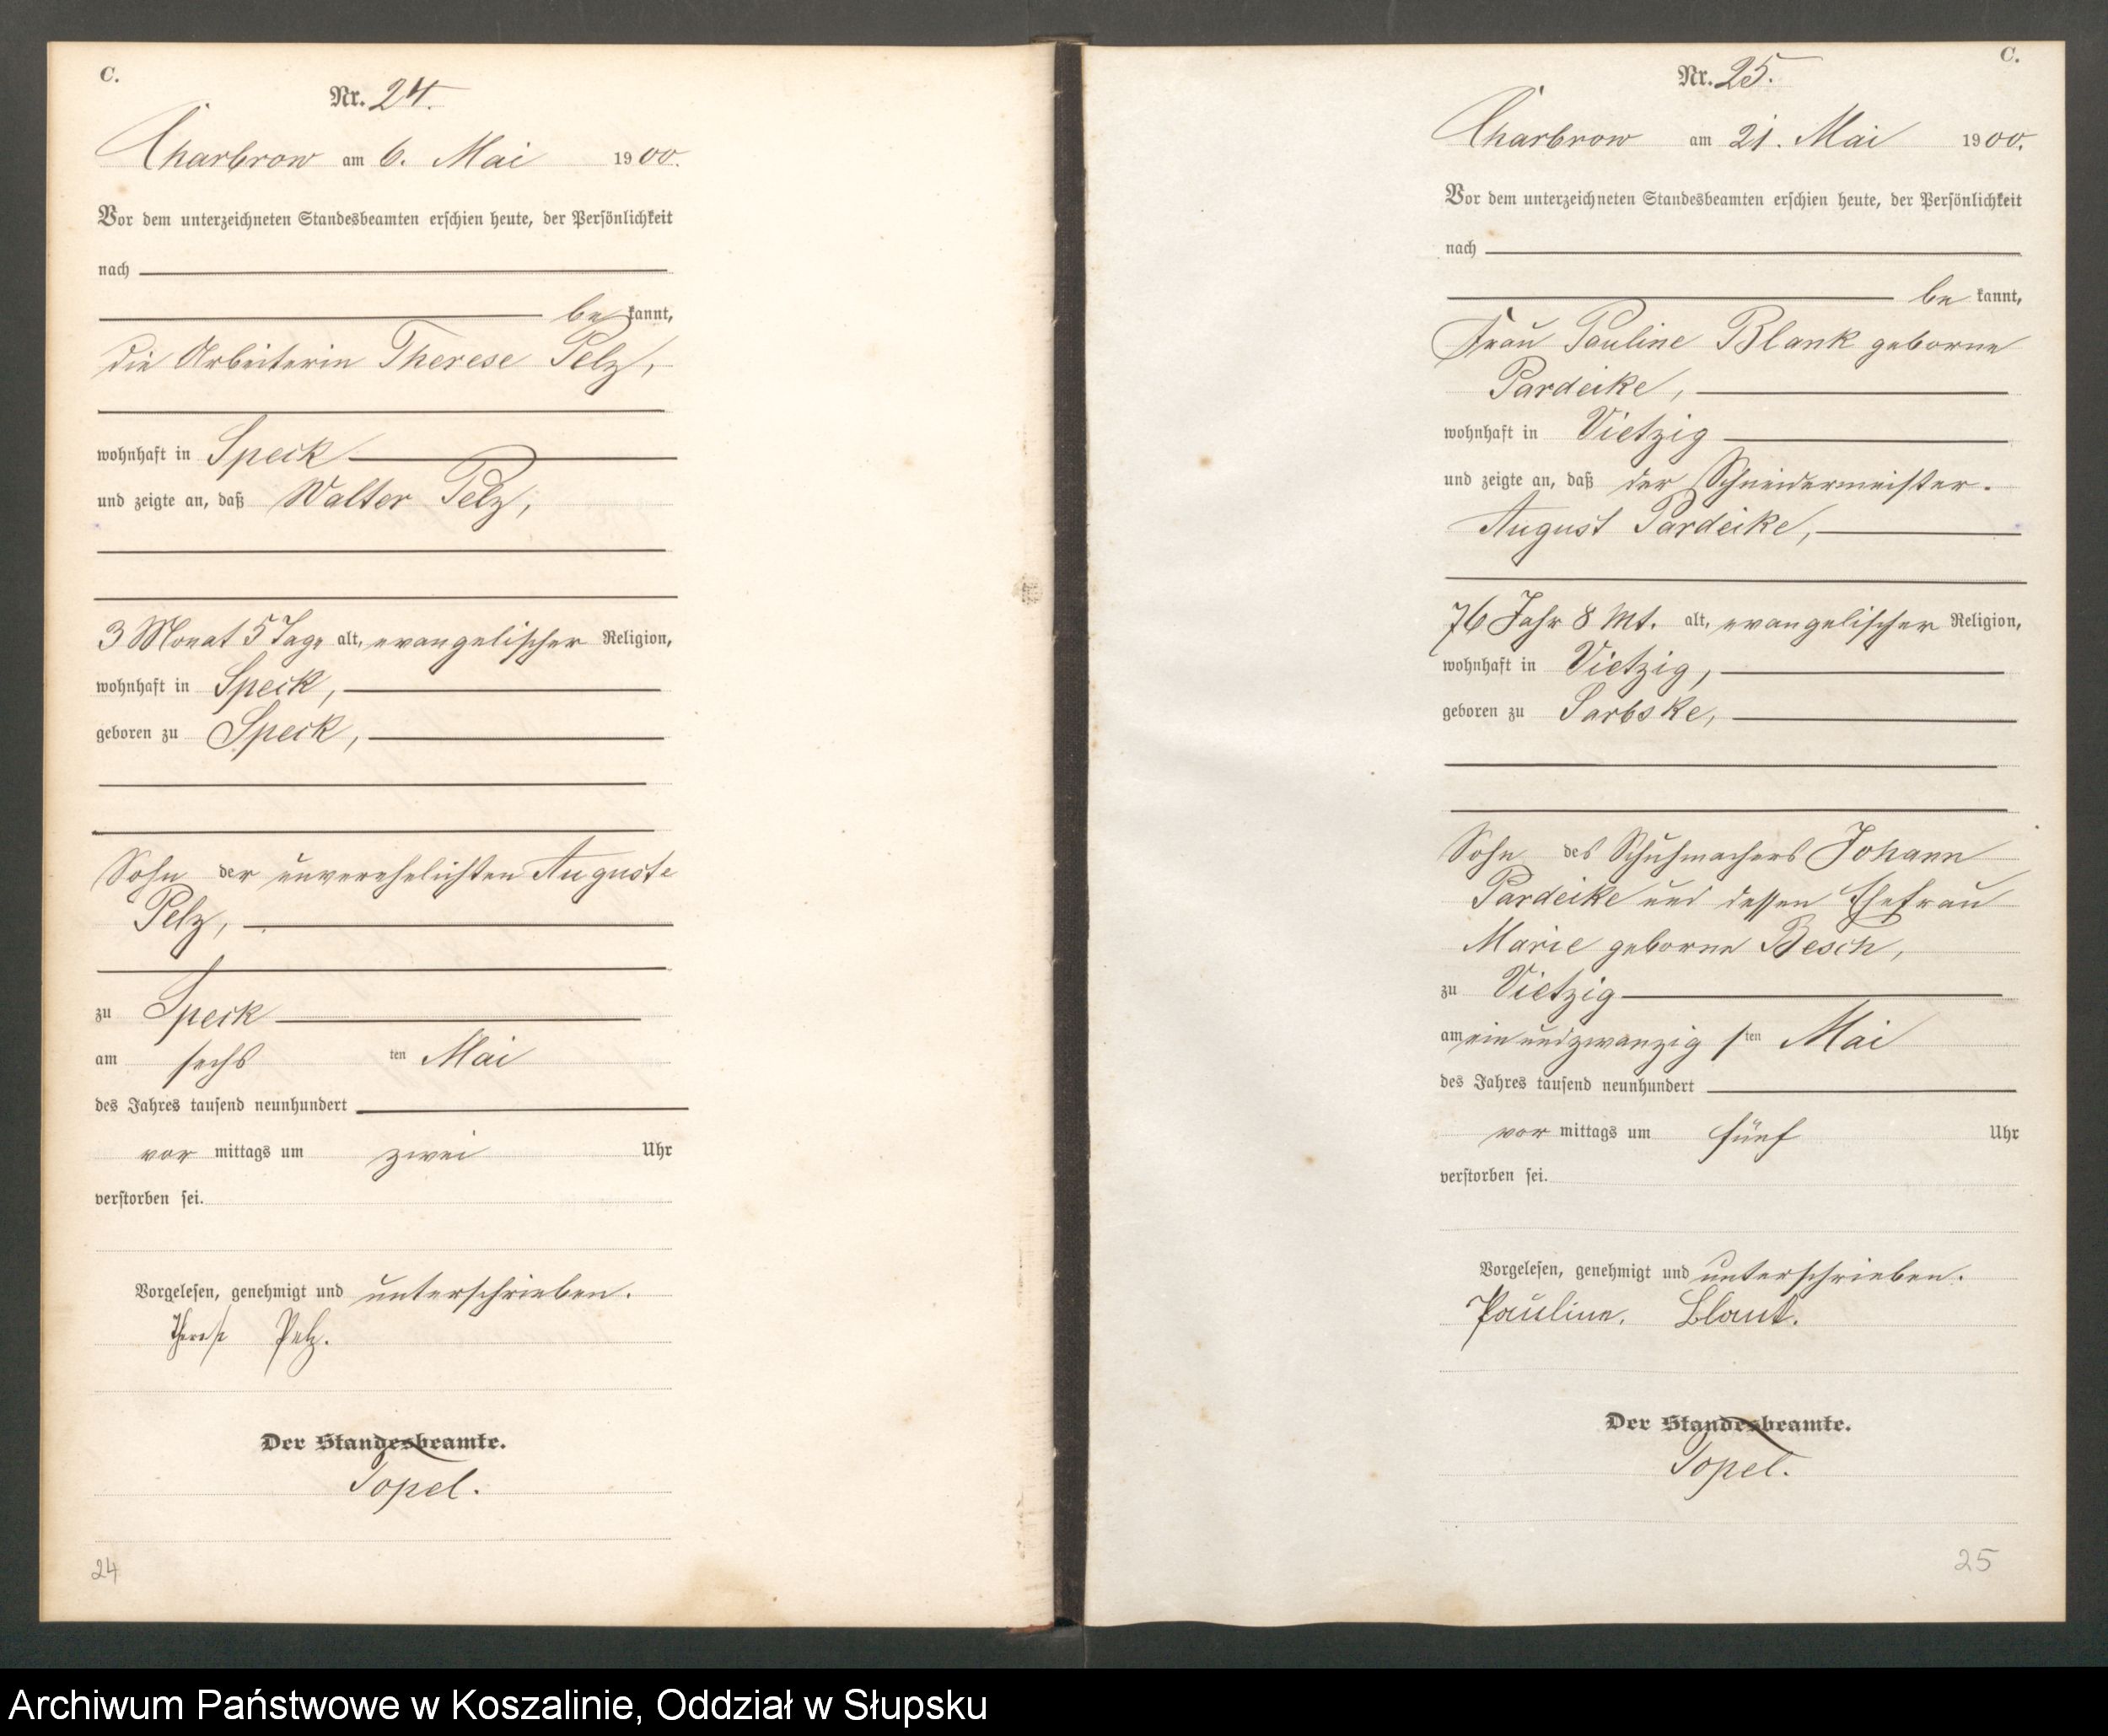 C.
Nr. 24.
Charbrow am 6. Mai 1900.
Vor dem unterzeichneten Standesbeamten erschien heute, der Persönlichkeit
nach
be kannt,
die Arbeiterin Therese Pelz,
wohnhaft in Speck
und zeigte an, daß Walter Pelz,
3 Monat 5 Tage alt, evangelischer Religion,
wohnhaft in Speck,
geboren zu Speck,
Sohn der unverehelichten Auguste
Pelz,
zu Speck
am sechs ten Mai
des Jahres tausend neunhundert
vor mittags um zwei Uhr
verstorben sei.
Vorgelesen, genehmigt und unterschrieben.
Therese Pelz.
Der Standesbeamte.
Topel.
24
C.
Nr. 25.
Charbrow am 21. Mai 1900.
Vor dem unterzeichneten Standesbeamten erschien heute, der Persönlichkeit
nach
be kannt,
Frau Pauline Blank geborne
Pardeike,
wohnhaft in Vietzig
und zeigte an, daß der Schneidermeister
August Pardeike,
76 Jahr 8 Mt. alt, evangelischer Religion,
wohnhaft in Vietzig,
geboren zu Sarbske,
Sohn des Schuhmachers Johann
Pardeike und dessen Ehefrau
Marie geborne Besch,
zu Vietzig
am ein und zwanzig sten Mai
des Jahres tausend neunhundert
vor mittags um fünf Uhr
verstorben sei.
Vorgelesen, genehmigt und unterschrieben.
Pauline. Blank.
Der Standesbeamte.
Topel.
25
Archiwum Państwowe w Koszalinie, Oddział w Słupsku